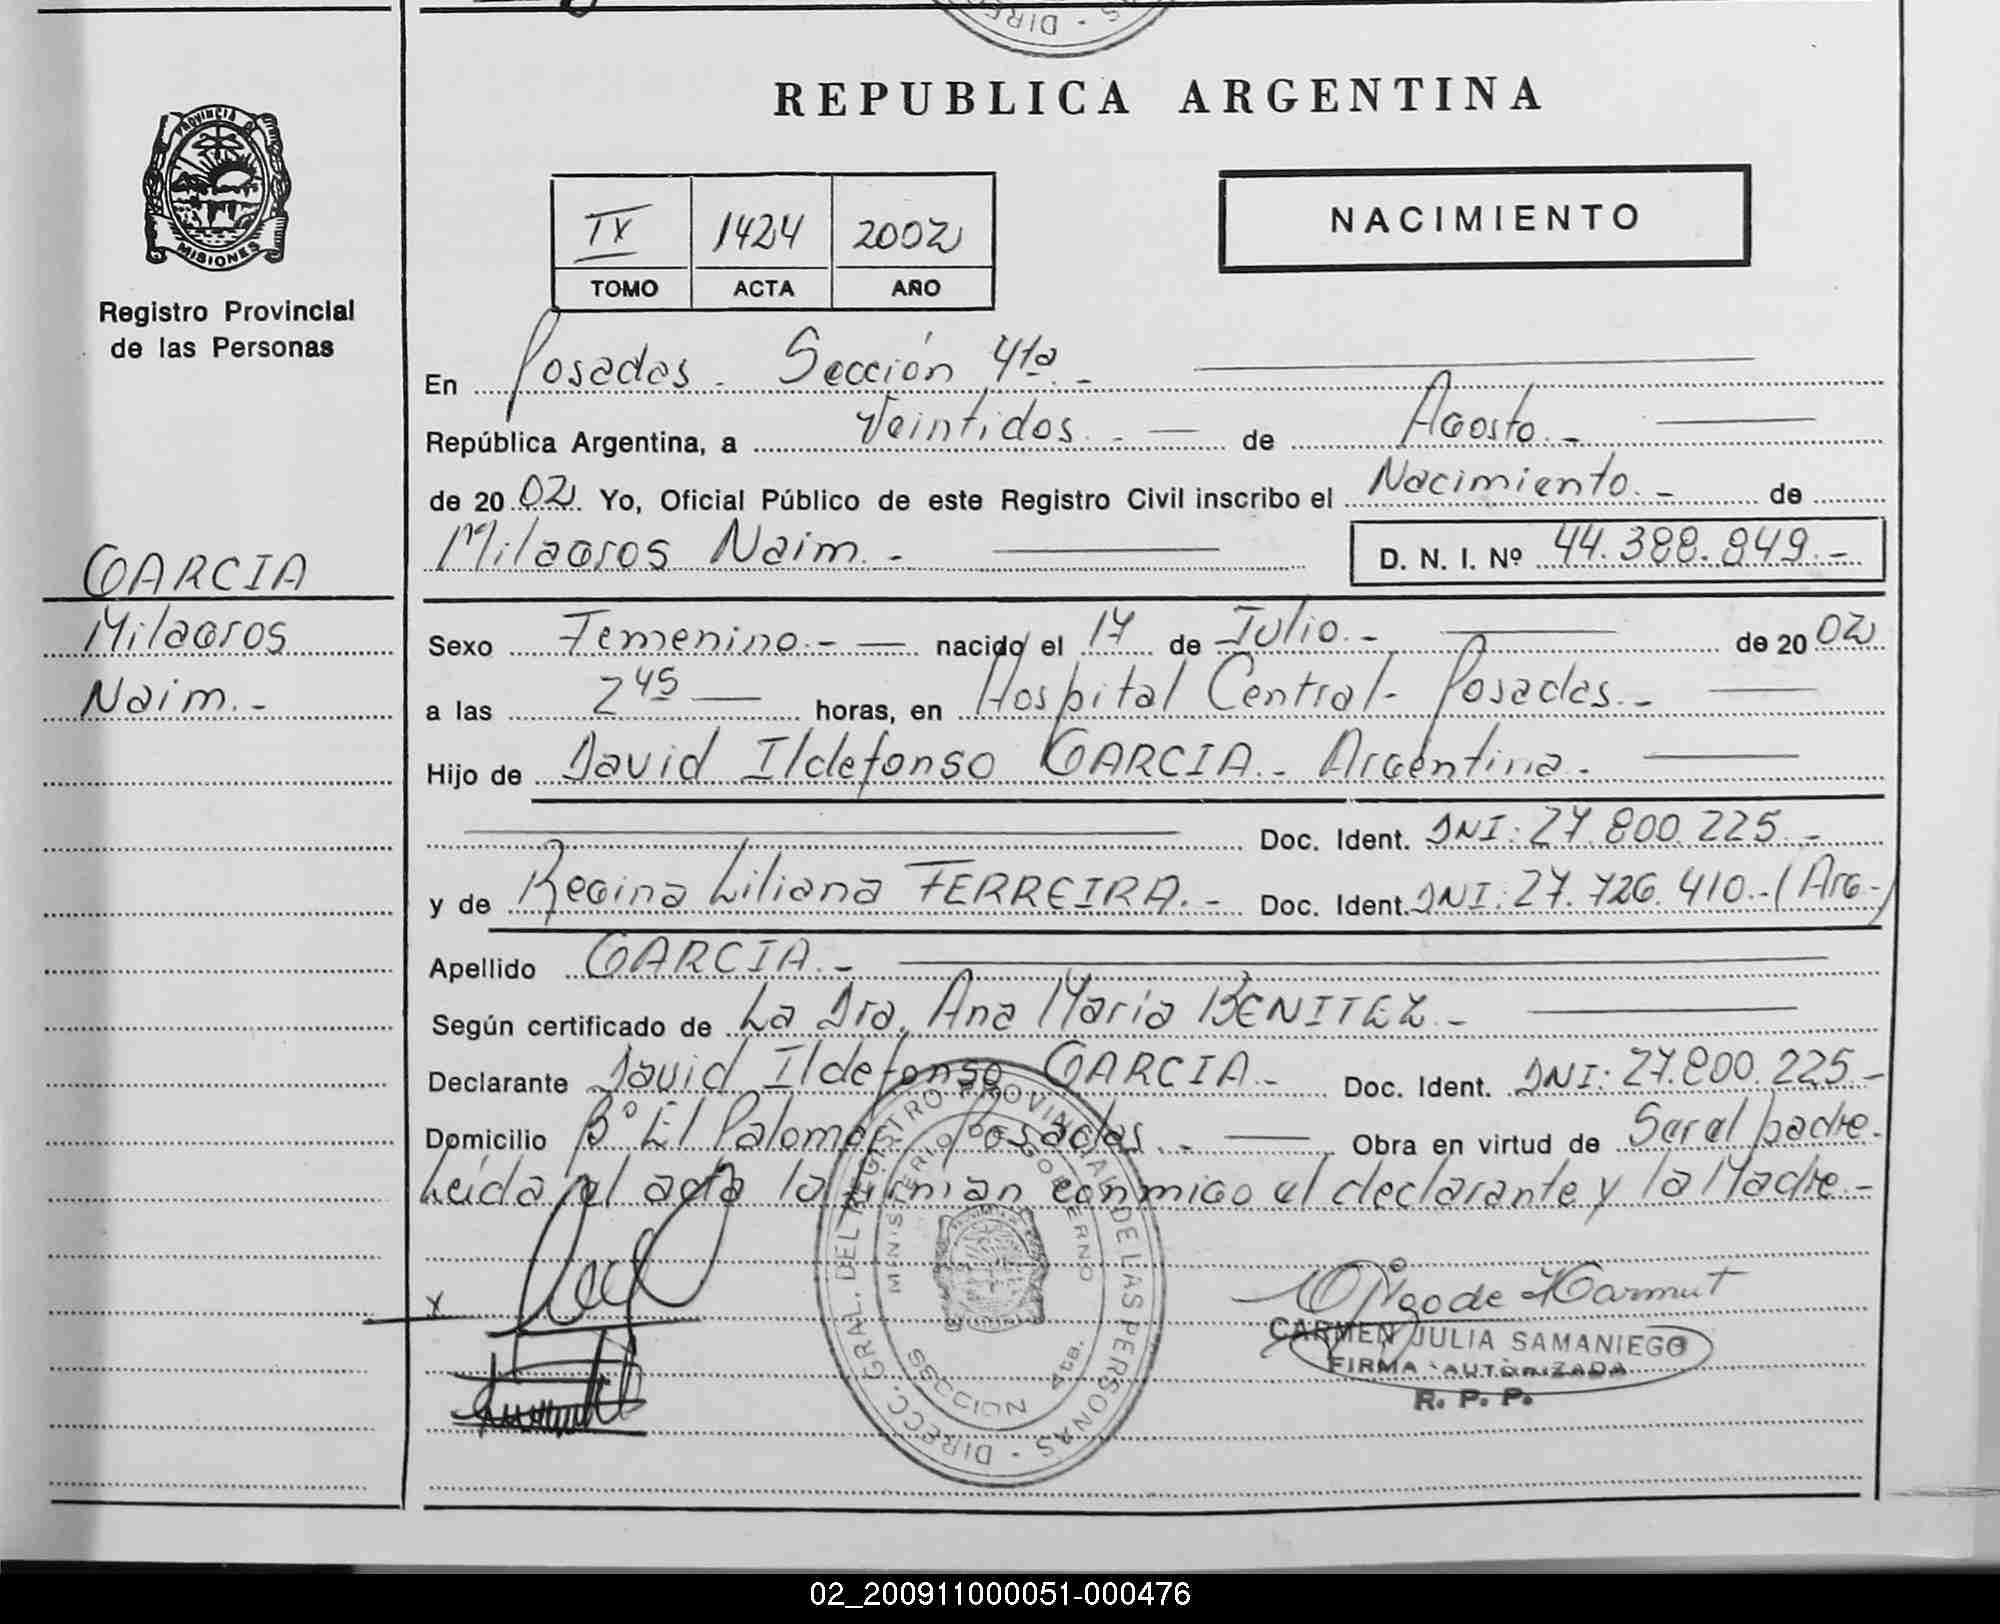 DIRECC. - AS
REPUBLICA ARGENTINA
PROVINCIA DE
MISIONES
Registro Provincial
de las Personas
NACIMIENTO
IX 1424 2002
TOMO ACTA AÑO
En Posadas - Sección 4ta.-
República Argentina, a Veintidos.- de Agosto.-
de 2002. Yo, Oficial Público de este Registro Civil inscribo el Nacimiento.- de
Milagros Naim.- D. N. I. Nº 44.388.849.-
GARCIA
Milagros
Naim.-
Sexo Femenino.- nacido el 17 de Julio.- de 2002
a las 2 45 horas, en Hospital Central- Posadas.-
Hijo de David Ildefonso GARCIA.- Argentina.-
Doc. Ident. DNI: 27.800.225.-
y de Regina Liliana FERREIRA.- Doc. Ident. DNI: 27.726.410.-(Arg.-)
Apellido GARCIA.-
Según certificado de La Dra. Ana María BENITEZ.-
Declarante David Ildefonso GARCIA.- Doc. Ident. DNI: 27.800.225.-
Domicilio Bº El Palomar - Posadas.- Obra en virtud de Ser el padre.
Leída el acta la firman conmigo el declarante y la Madre.-
x
DIRECC. GRAL. DEL REGISTRO PROVINCIAL DE LAS PERSONAS -
MINISTERIO DE GOBIERNO
SECCION 4ta.
CARMEN JULIA SAMANIEGO
FIRMA AUTORIZADA
R. P. P.
02_200911000051-000476